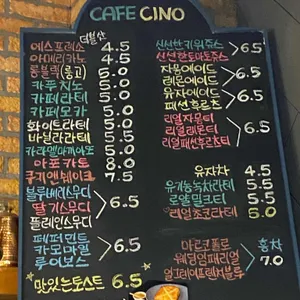 CAFE CINO
더블샷
에스프레소 4.5
아메리카노 4.5
롱블랙(롱고) 5.0
카푸치노 5.0
카페라테 5.0
카페모카 5.0
화이트라테 5.5
바닐라라테 5.5
카라멜마끼아또 5.5
아포가토 8.0
쿠키앤쉐이크 7.5
블루베리스무디
딸기스무디 > 6.5
플레인스무디
페퍼민트
카모마일 > 6.5
루이보스
맛있는토스트 6.5
신선한키위쥬스
신선한토마토쥬스 > 6.5
자몽에이드
레몬에이드
유자에이드 > 6.5
패션후르츠
리얼자몽티
리얼레몬티 > 6.5
리얼패션후르츠티
유자차 4.5
유기농녹차라테 5.5
로얄밀크티 5.5
리얼초코라테 6.0
마르코폴로 홍차
웨딩임페리얼 7.0
얼그레이프렌치블루